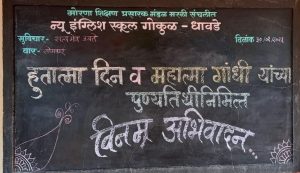 मोरणा शिक्षण प्रसारक मंडळ मरळी संचलीत
न्यू इंग्लिश स्कूल गोकुळ - धावडे
सुविचार:- सत्य मेव जयते दिनांक ३०.०१.२०२३
वार:- सोमवार
हुतात्मा दिन व महात्मा गांधी यांच्या
पुण्यतिथीनिमित्त
विनम्र अभिवादन...